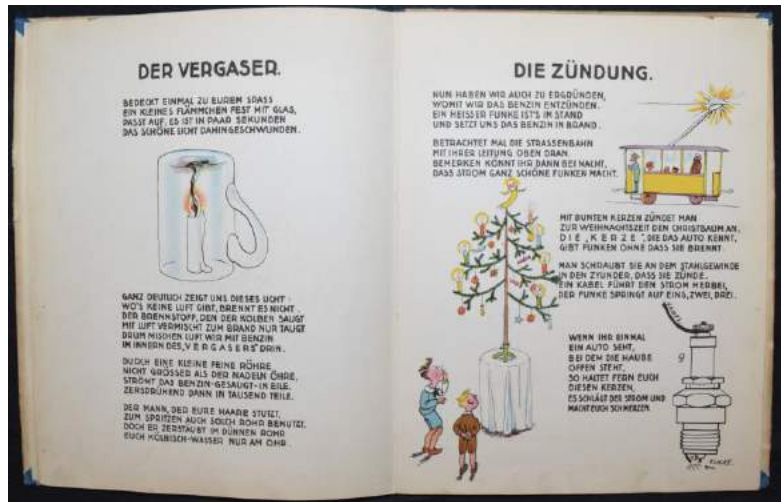 DER VERGASER.
BEDECKT EINMAL ZU EUREM SPASS
EIN KLEINES FLÄMMCHEN FEST MIT GLAS,
PASST AUF, ES IST IN PAAR SEKUNDEN
DAS SCHÖNE LICHT DAHINGESCHWUNDEN.
GANZ DEUTLICH ZEIGT UNS DIESES LICHT:
WO'S KEINE LUFT GIBT, BRENNT ES NICHT.
DER BRENNSTOFF, DEN DER KOLBEN SAUGT
MIT LUFT VERMISCHT ZUM BRAND NUR TAUGT
DRUM MISCHEN LUFT WIR MIT BENZIN
IM INNERN DES „VERGASERS" DRIN.
DURCH EINE KLEINE FEINE RÖHRE
NICHT GRÖSSER ALS DER NADELN ÖHRE,
STRÖMT DAS BENZIN-GESAUGT-IN EILE.
ZERSPRÜHEND DANN IN TAUSEND TEILE.
DER MANN, DER EURE HAARE STUTZT,
ZUM SPRITZEN AUCH SOLCH ROHR BENUTZT.
DOCH ER ZERSTÄUBT IM DÜNNEN ROHR
EUCH KÖLNISCH-WASSER NUR AM OHR.
DIE ZÜNDUNG.
NUN HABEN WIR AUCH ZU ERGRÜNDEN,
WOMIT WIR DAS BENZIN ENTZÜNDEN.
EIN HEISSER FUNKE IST'S IM STAND
UND SETZT UNS DAS BENZIN IN BRAND.
BETRACHTET MAL DIE STRASSENBAHN
MIT IHRER LEITUNG OBEN DRAN.
BEMERKEN KÖNNT IHR DANN BEI NACHT,
DASS STROM GANZ SCHÖNE FUNKEN MACHT.
MIT BUNTEN KERZEN ZÜNDET MAN
ZUR WEIHNACHTSZEIT DEN CHRISTBAUM AN.
DIE „KERZE", DIE DAS AUTO KENNT,
GIBT FUNKEN OHNE DASS SIE BRENNT.
MAN SCHRAUBT SIE AN DEM STAHLGEWINDE
IN DEN ZYLINDER, DASS SIE ZÜNDE.
EIN KABEL FÜHRT DEN STROM HERBEI,
DER FUNKE SPRINGT AUF EINS, ZWEI, DREI.
WENN IHR EINMAL
EIN AUTO SEHT,
BEI DEM DIE HAUBE
OFFEN STEHT,
SO HALTET FERN EUCH
DIESEN KERZEN,
ES SCHLÄGT DER STROM UND
MACHT EUCH SCHMERZEN.
KABEL
FUNKE